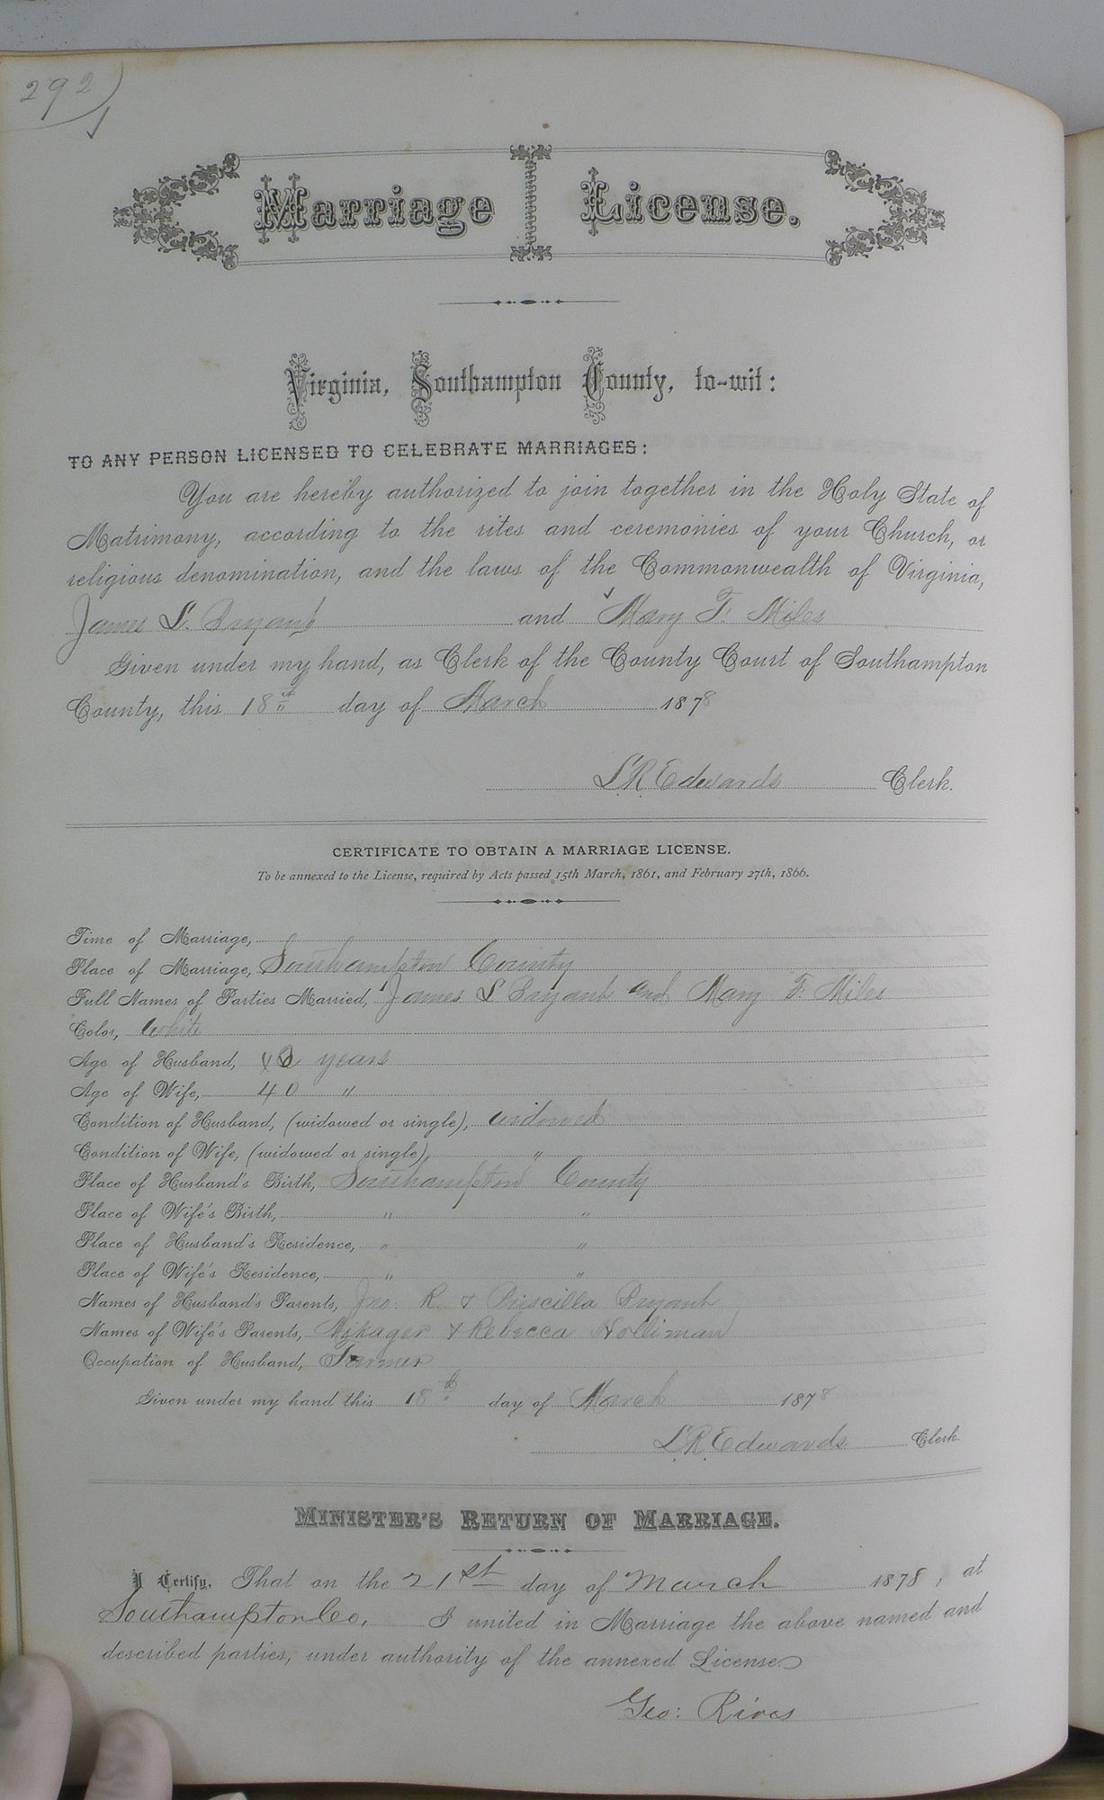 292
Marriage License.
Virginia, Southampton County, to-wit:
TO ANY PERSON LICENSED TO CELEBRATE MARRIAGES:
You are hereby authorized to join together in the Holy State of
Matrimony, according to the rites and ceremonies of your Church, or
religious denomination, and the laws of the Commonwealth of Virginia,
James S. Bryant and Mary F. Miles
Given under my hand, as Clerk of the County Court of Southampton
County, this 18th day of March 1878
L.R. Edwards Clerk.
CERTIFICATE TO OBTAIN A MARRIAGE LICENSE.
To be annexed to the License, required by Acts passed 15th March, 1861, and February 27th, 1866.
Time of Marriage,
Place of Marriage, Southampton County
Full Names of Parties Married, James S Bryant and Mary F. Miles
Color, White
Age of Husband, years
Age of Wife, 40 "
Condition of Husband, (widowed or single), widowed
Condition of Wife, (widowed or single) "
Place of Husband's Birth, Southampton County
Place of Wife's Birth, " "
Place of Husband's Residence, " "
Place of Wife's Residence, " "
Names of Husband's Parents, Jno. R. & Priscilla Bryant
Names of Wife's Parents, & Rebecca Holliman
Occupation of Husband, Farmer
Given under my hand this 18th day of March 1878
L.R. Edwards Clerk
MINISTER'S RETURN OF MARRIAGE.
I Certify, That on the 21st day of March 1878, at
Southampton Co, I united in Marriage the above named and
described parties, under authority of the annexed License
Geo: Rives